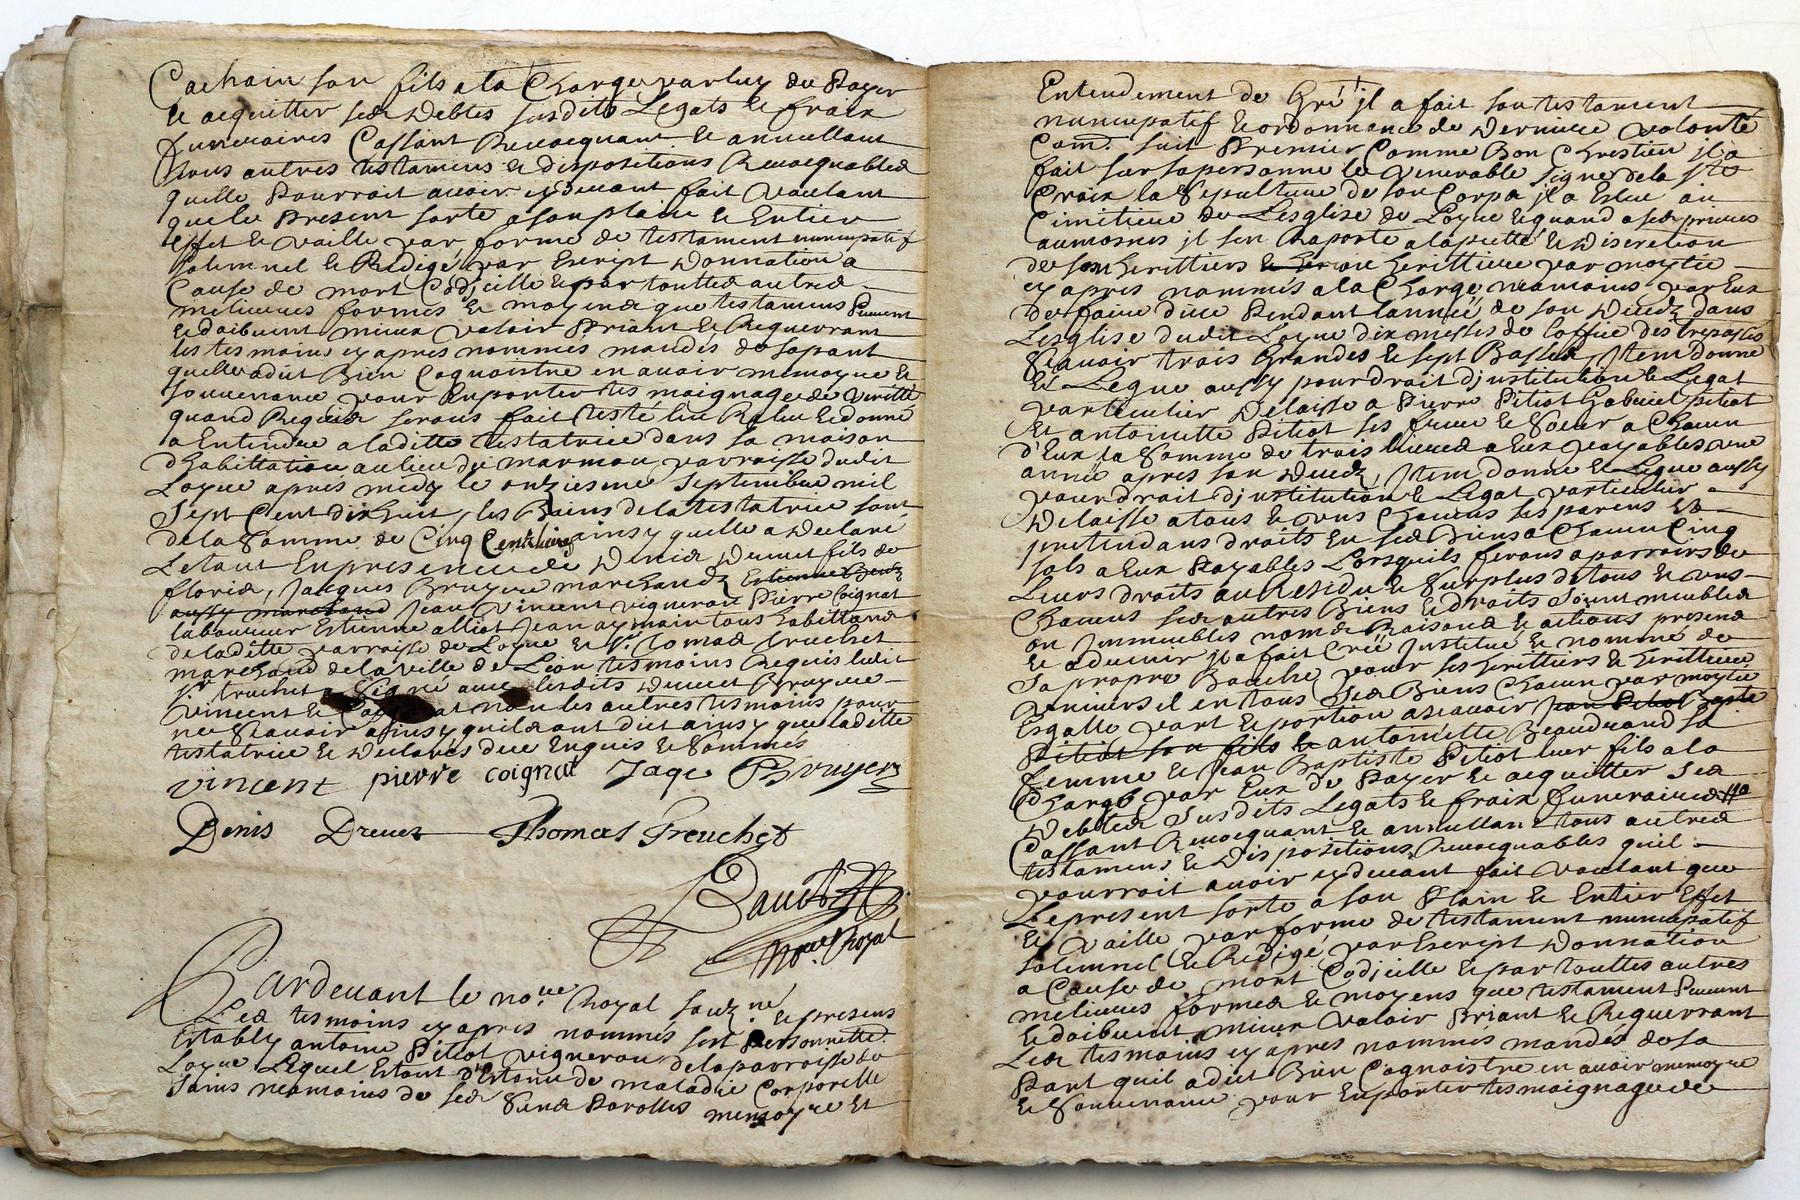 Cachain son fils a la Charge par luy de Payer
et acquitter ses Debtes susdits Legats et fraix
funeraires Cassant Revocquant et annullant
tous autres testamens et dispositions Revocquables
quelle Pourrait avoir cydevant fait Voulant
que le Present sorte a son plain et Entier
effet et vaille par forme de testament nuncupatif
solemnel et Redigé par Escript Donnation a
Cause de mort Codjcille et par touttes autres
melieures formes et moyens que testamens Peuvent
et doibvent mieux valoir Priant et Requerrant
les tesmoins cy apres nommés mandés de sa part
quelle a dit Bien Cognoistre en avoir memoyre et
souvenance pour Enporter tesmoignage de verité
quand Requis serons fait testé leu Releu et donné
a Entendre a laditte testatrice dans sa maison
d'habittation au lieu du marmon parroisse dudit
Loyre apres midy le onziesme Septembre mil
Sept Cent dix huit, les Biens de la testatrice sont
de la Somme de Cinq Cent livres ainsy quelle a Declaré
Le tout En presence de Denis Drevet fils de
floris, Jacques Bruyere marchandz Estienne
aussy marchand Jean Vincent vigneron Pierre Coignat
laboureur Estienne alliot Jean aymain tous habittans
de laditte parroisse de Loyre et Sr. Tomas truchet
marchand de la ville de Lion tesmoins Requis ledit
Sr truchet a Signé avec lesdits Drevet Bruyere
Vincent et Coignat non les autres tesmoins pour
ne Scavoir ainsy quils ont dict ainsy que laditte
testatrice et Declarés de ce Enquis et Sommés
vincent pierre coignat Jaqe Bruyere
Denis Drevet Thomas Treuchet
nore Royal
Pardevant le nore Royal souzné
Les tesmoins cy apres nommés et presens
Estably antoine Pitiot vigneron de la parroisse de
Loyre Lequel Estant detenu de maladie Corporelle
Sains neamoins de ses Sens Parolles memoyre Et
Entendement de Gré jl a fait son testament
nuncupatif et ordonnance de Derniere volonté
Com. suit Premier Comme Bon Chrestien jl a
fait sur sa personne le Venerable Signe de la Ste
Croix la Sepulture de son Corps jl a Esleu au
Cimitiere de Lesglise de Loyre et quand a ses prieres
aumosnes jl sen Raporte a la pietté et Discretion
de ses heritiers et heritiere par moytié
cy apres nommés a la Charge neamoins par Eux
de faire dire Pendant lannée de son Decedz dans
Lesglise dudit Loyre dix messes de loffice des trepassés
Scavoir trois Grandes et sept Basses, Jtem donne
Et Legue aussy pour droit djnstitution et Legat
particulier Delaisse a Pierre Pitiot Gabriel pitiot
Et antoinette Pitiot ses frere et Soeur a Chacun
d'Eux la Somme de trois livres a Eux payables une
année apres son Decedz, Jtem donne et Legue aussy
pour droit djnstitution et Legat particulier
Delaisse a tous et uns Chacuns ses parens Et
pretendans droits En ses Biens a Chacun Cinq
sols a Eux Payables Lorsquils ferons aparroirs de
Leurs droits au Residu et Surplus de tous et uns
Chacuns ses autres Biens et droits Soient meubles
ou Jmmeubles noms Raisons et actions presens
et advenir jl a fait Créé Jnstitué et nommé de
Sa propre Bouche pour ses heritiers et heritiere
Universel en tous ses Biens Chacun par moytié
Esgalle part et portion a scavoir Jean Pitiot
Pitiot son fils et antoinette Beaudrand sa
femme et Jean Baptiste Pitiot leur fils a la
Charge par Eux de Payer et acquitter ses
Debtes Susdits Legats et fraix funeraires
Cassant Revocquant et annullant tous autres
testamens et Dispositions Revocquables quil
pourroit avoir cydevant fait voulant que
Le present sorte a son Plain et Entier Effet
Et Vaille par forme de testament nuncupatif
solemnel et Redigé par Escript Donnation
a Cause de mort Codjcille et par touttes autres
melieures formes et moyens que testament Peuvent
et doibvent mieux Valoir Priant et Requerrant
Les tesmoins cy apres nommés mandés de sa
Part quil a dict Bien Cognoistre en avoir memoyre
et Souvenance pour Enporter tesmoignage de